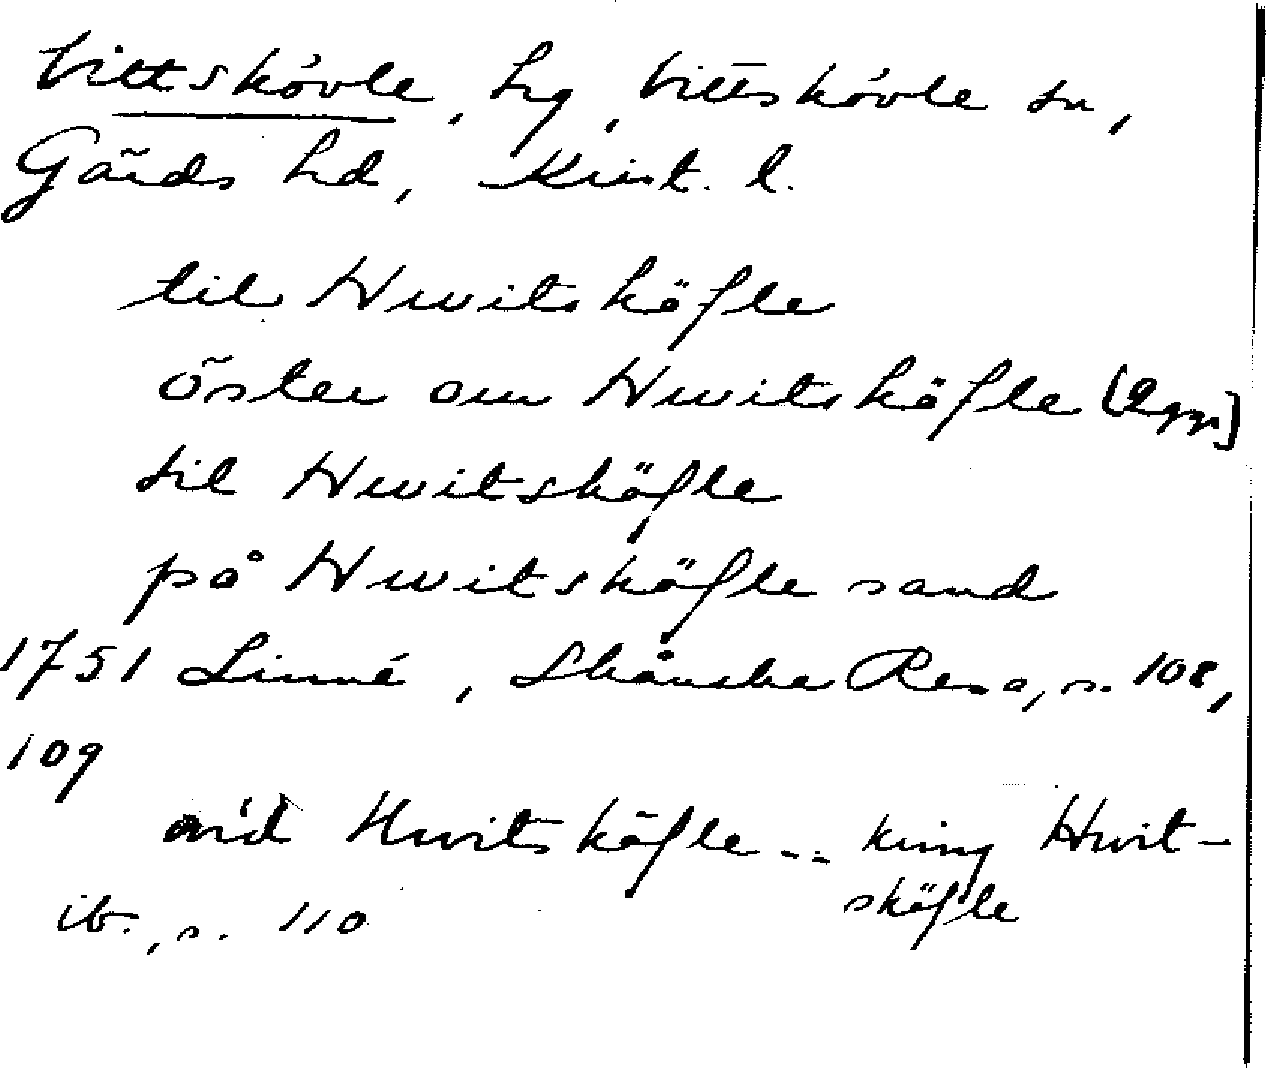 Vittskövle, hg, Vittskövle sn,
Gärds hd, Krist. l.
til Hwitsköfle
öster om Hwitsköfle [2 ggr]
til Hwitsköfle
på Hwitsköfle sand
1751 Linné, Skånska Resa, s. 108,
109
wid Hwitsköfle -- kring Hwit-
sköfle
ib., s. 110